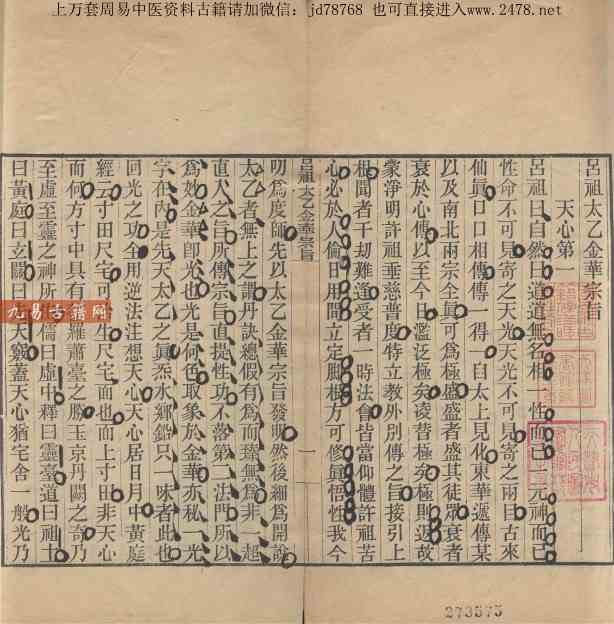 上万套周易中医资料古籍请加微信：jd78768 也可直接进入www.2478.net
呂祖太乙金華宗旨
天心第一
呂祖曰自然曰道道無名相一性而已一元神而已
性命不可見寄之天光天光不可見寄之兩目古來
仙眞口口相傳傳一得一自太上見化東華遞傳某
以及南北兩宗全眞可爲極盛盛者盛其徒眾衰者
衰於心傳以至今日濫泛極矣凌替極矣極則返故
蒙淨明許祖垂慈普度特立教外別傳之旨接引上
根聞者千劫難逢受者一時法會皆當仰體許祖苦
心必於人倫日用間立定脚根方可修眞悟性我今
呂祖太乙金華宗旨
一
叨爲度師先以太乙金華宗旨發明然後細爲開說
太乙者無上之謂丹訣總假有爲而臻無爲非一超
直入之旨所傳宗旨直提性功不落第二法門所以
爲妙金華卽光也光是何色取象於金華亦秘一光
字在內是先天太乙之眞炁水鄉鉛只一味者此也
回光之功全用逆法注想天心天心居日月中黃庭
經云寸田尺宅可生尺宅面也面上寸田非天心
而何方寸中具有羅蕭臺之勝玉京丹闕之奇乃
至虛至靈之神所儒曰虛中釋曰靈臺道曰祖土
曰黃庭曰玄關曰先天竅蓋天心猶宅舍一般光乃
九易古籍网
273575